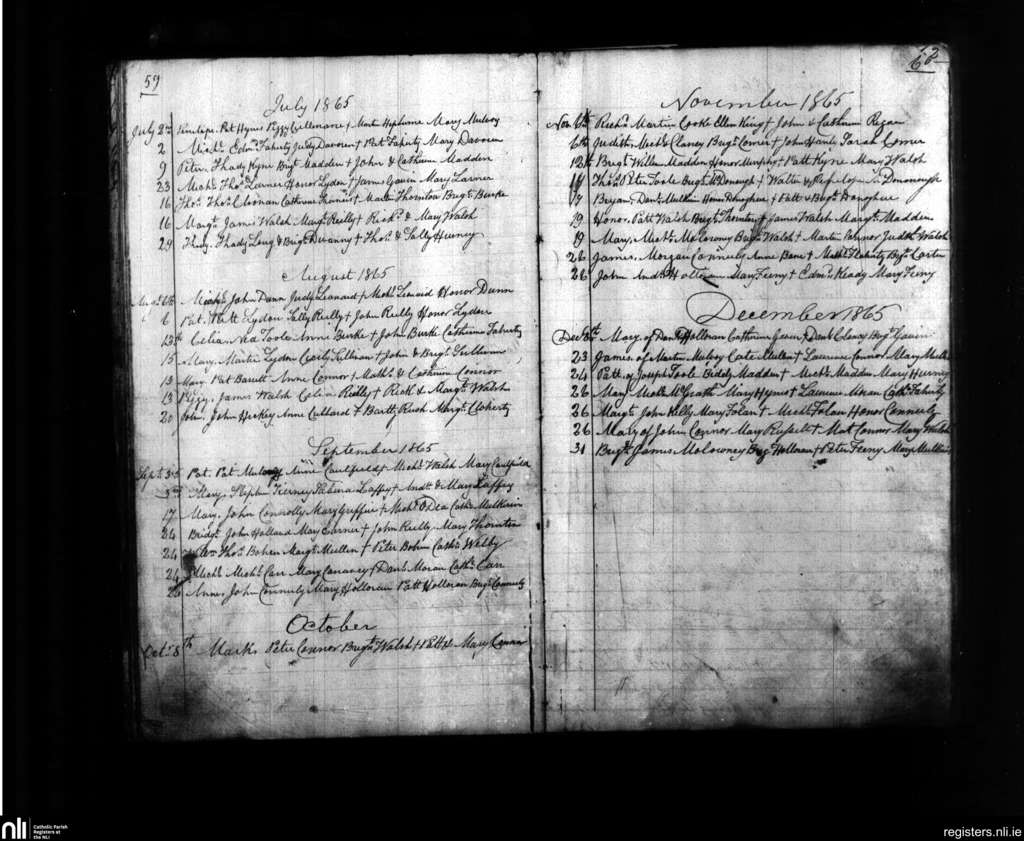 59
July 1865
July 2nd Penelope. Pat Hynes Peggy Cullenane + Martin Hephinne Mary Mulroy
2 Michl. Edmd. Faherty Judy Davoren + Pat Faherty Mary Davoren
9 Peter. Thady Kyne Brigt Madden + John & Catherine Madden
23 Michl. Thos. Larner Honor Lydon + James Gavin Mary Larner
16 Thos. Thos. Cloonan Catherine + Martin Thornton Brigt. Burke
16 Margt. James Walsh Margt. Reilly + Richd. & Mary Walsh
29 Thady & Brigt. Devanny + Thos. & Sally
August 1865
Augt. 6th Michl. John Dunn Judy Leonard + Michl. Leonard Honor Dunn
6 Pat. Patt Lydon Sally Reilly + John Reilly Honor Lydon
13th Celia. Ned Toole Anne Burke + John Burke Catherine Faherty
15 Mary. Martin Lydon Cecily Sullivan + John & Brigt. Sullivan
13 Mary Pat Barrett Anne Connor + & Catherine Connor
13 Peggy. James Walsh Celia Reilly + Richd. & Margt. Walsh
20 John. John Hickey Anne + Bartt. Ruch Margt. Cloherty
September 1865
Sept 3rd Pat. Pat Mulroy Anne Caulfield + Michl. Walsh Mary Caulfield
3rd Mary. Stephen Tierney Laffey + & Mary Laffey
17 Mary. John Connolly Mary Griffin + Michl. O Dea Cathe. Mulkerin
24 Bridgt. John Holland Mary Larner + John Reilly Mary Thornton
24 Thos. Bohen Margt. Mullen + Peter Bohen Cathe. Welby
24 Michl. Michl. Carr Mary + Danl. Moran Cathe. Carr
26 Anne. John Connely Mary Holloran Patt Holloran Brigt. Connely
October
Oct. 8th Mark. Peter Connor Brigt. Walsh + Patt & Mary
62
November 1865
Nov. 6th Richd. Martin Cooke Ellen King + John & Catherine Regan
6th Judith. Michl. Clancy Brigt. Comer + John Hanly Sarah Comer
12th Brigt. Willm. Madden Honor Murphy + Patt Kyne Mary Walsh
Thos. Peter Toole Brigt. McDonough + Walter & Penelope Donnough
17 Bryan. Danl. Mulkin Honor Donoghue + Patt & Brigt. Donoghue
19 Honor. Patt Walsh Brigt. Thornton + James Walsh Margt. Madden
19 Mary. Michl. Molowney Brigt. Walsh + Martin Connor Judith Walsh
26 James. Morgan Connely Anne Bane + Flaherty
26 John Andw. Holloran Mary Feeny + Edmd. Keady Mary Feeny
December 1865
Dec 8th Mary. of Danl. Holloran Catherine + Danl. Clancy Brigt. Gavin
23 James of Martin Mulroy Cate Mullen + Laurence Connor Mary
24 Patt. of Joseph Toole Biddy Madden + Michl. Madden Mary
26 Mary Michl. McGrath Mary Hynes + Laurence Moran Cathe. Faherty
26 Margt. John Kelly Mary Folan + Michl. Folan Honor Connely
26 Mary of John Connor Mary Russell + Mat Connor Mary Walsh
31 Brigt. James Molowney Brigt. Holloran + Peter Feeny Mary
nli
Catholic Parish
Registers at
the NLI
registers.nli.ie